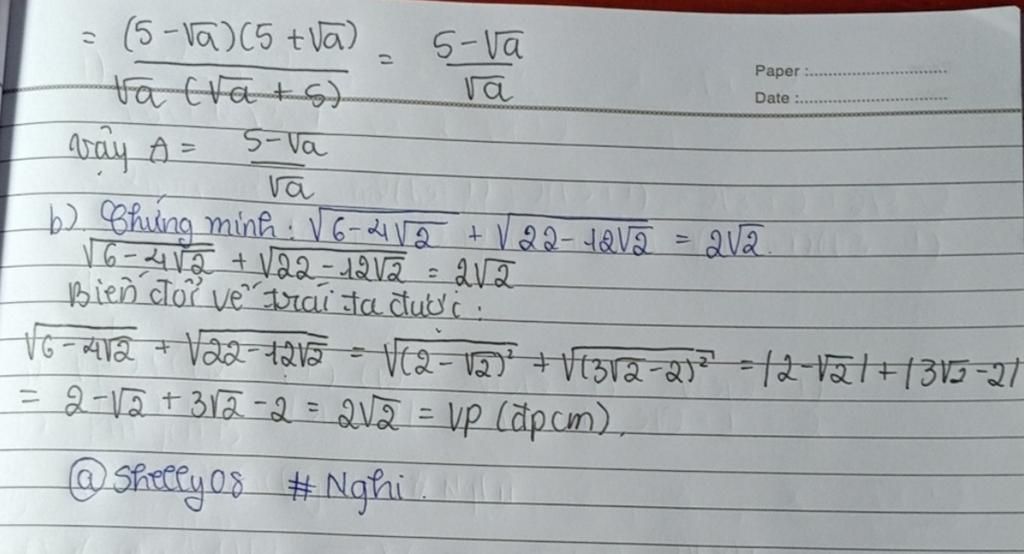 = (5-√a)(5+√a) / √a(√a+5) = 5-√a / √a
Paper :
Date :
Vậy A = 5-√a / √a
b) Chứng minh: √(6-4√2) + √(22-12√2) = 2√2.
√(6-4√2) + √(22-12√2) = 2√2
Biến đổi vế trái ta được:
√(6-4√2) + √(22-12√2) = √((2-√2)²) + √((3√2-2)²) = |2-√2| + |3√2-2|
= 2-√2 + 3√2-2 = 2√2 = VP (đpcm).
@Shelly08 #Nghi.